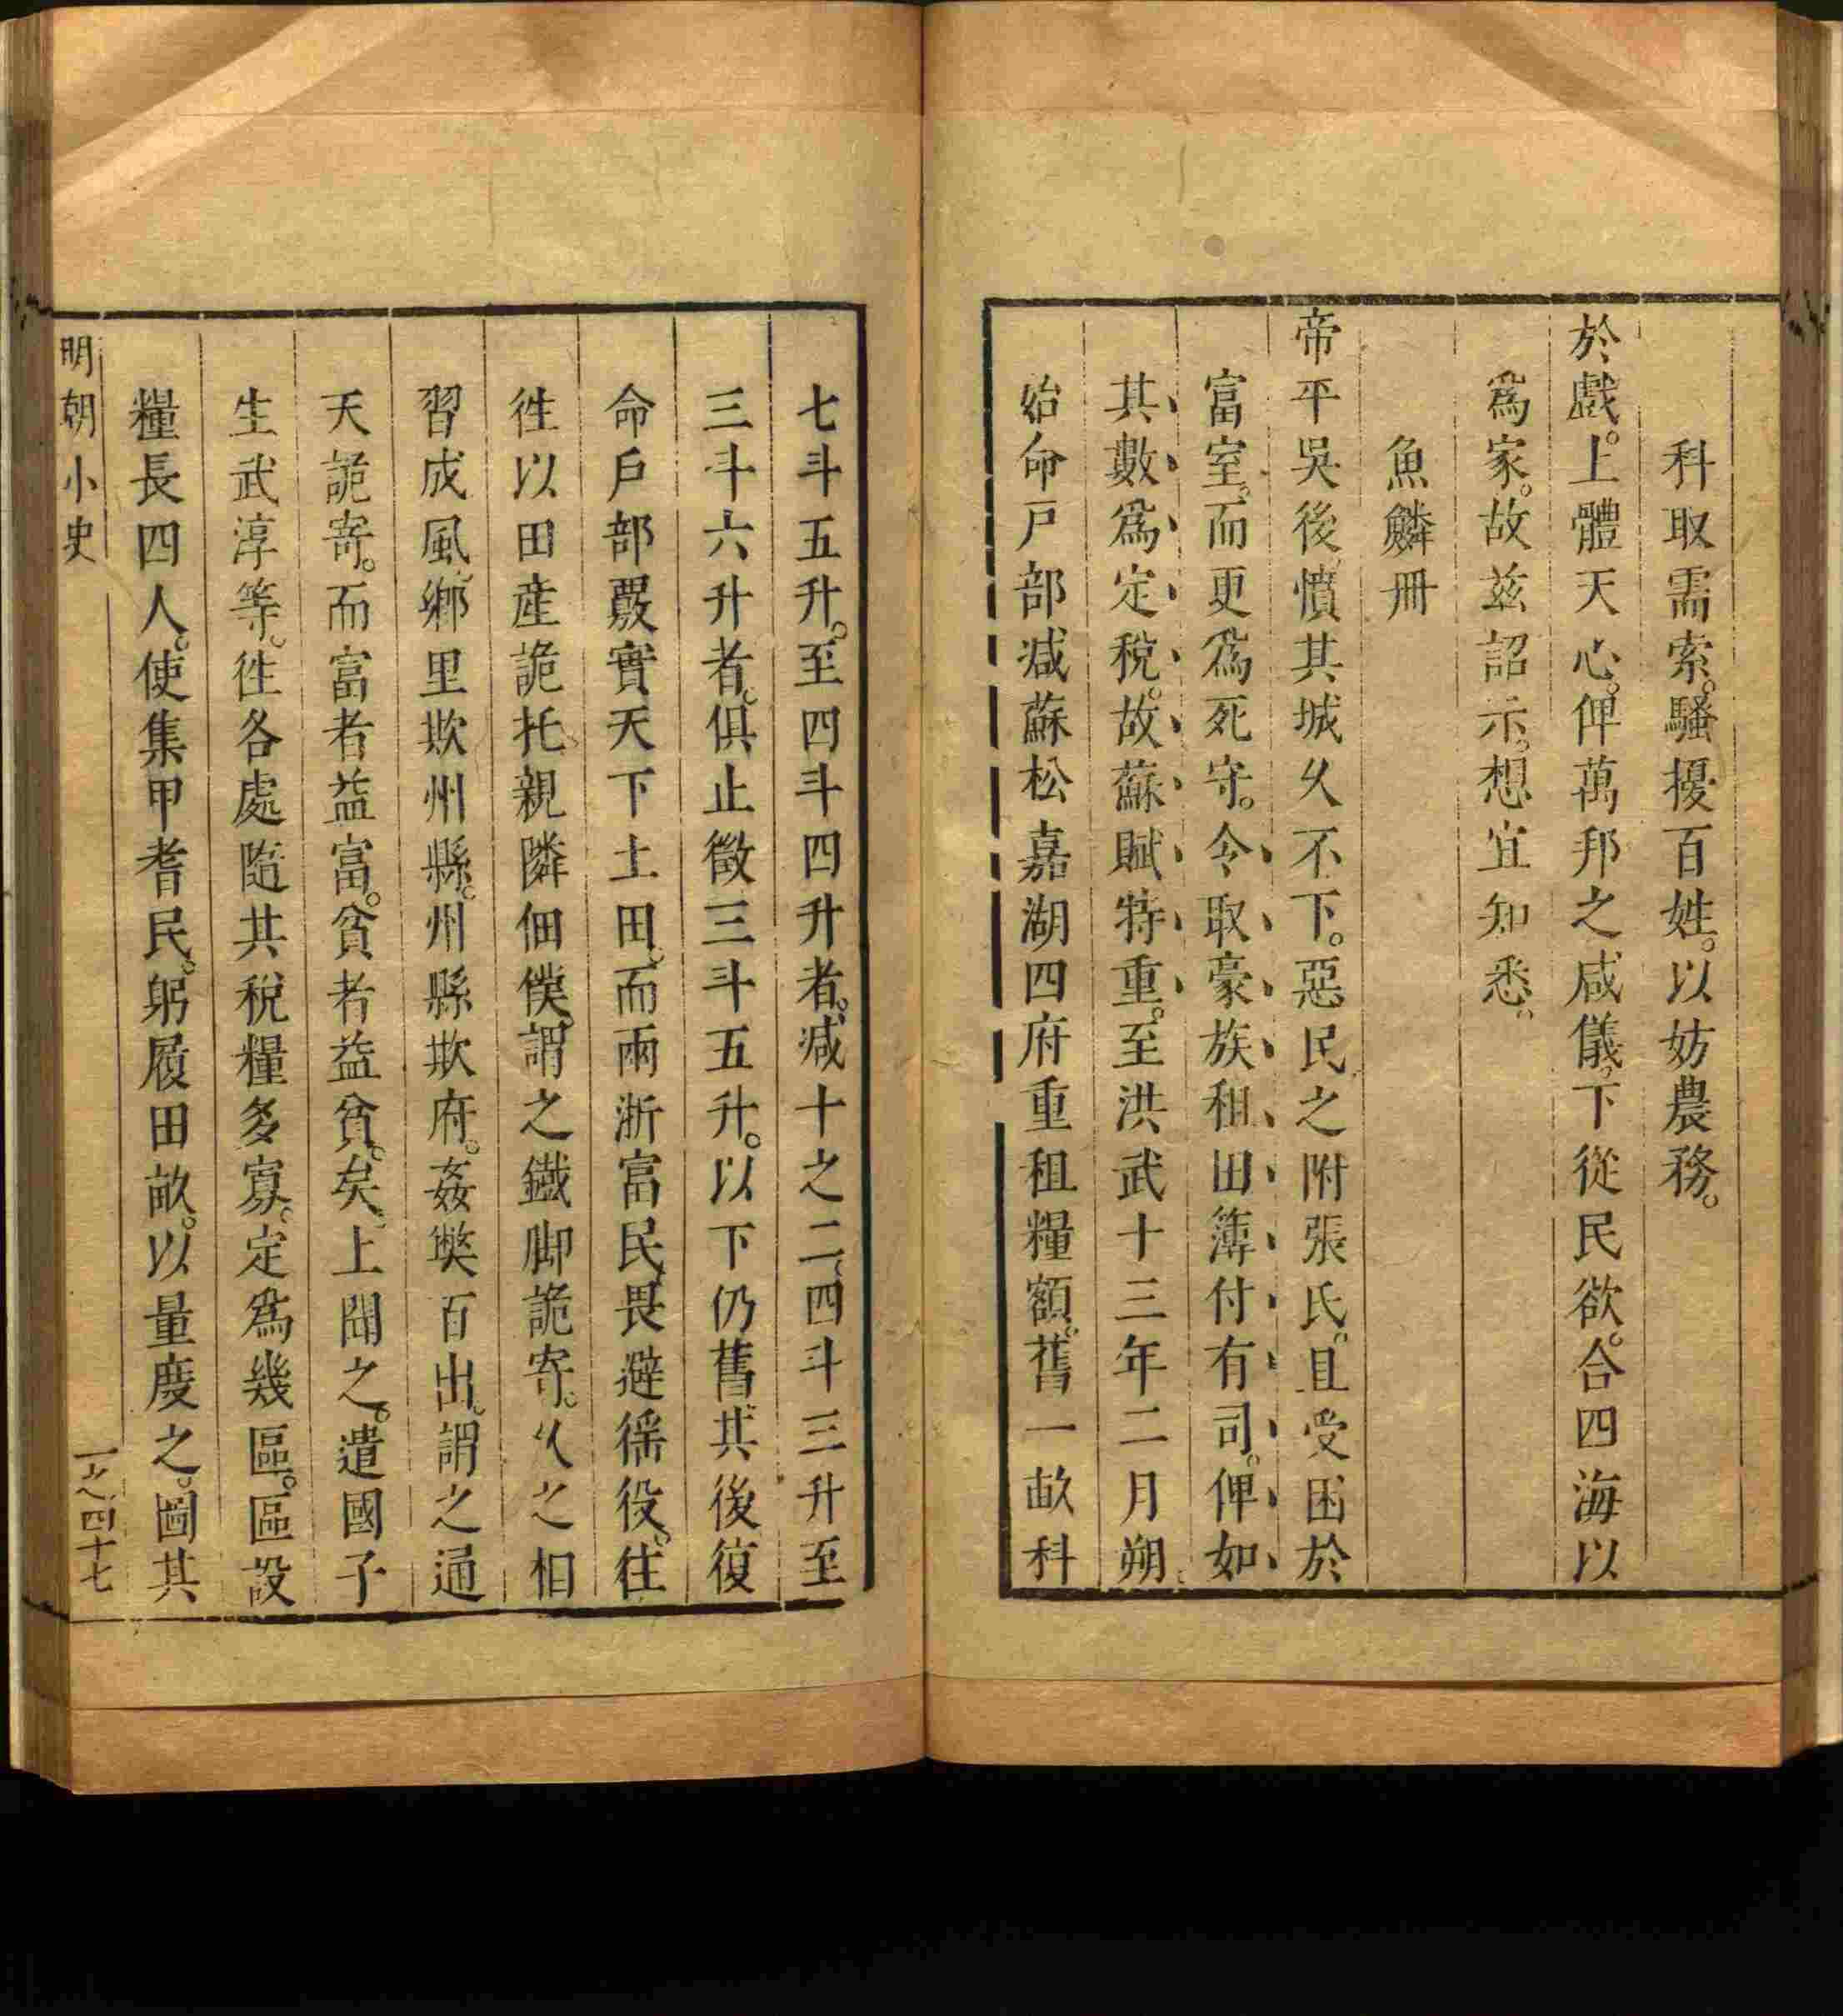 科取需索。騷擾百姓。以妨農務。
於戲。上體天心。俾萬邦之咸儀。下從民欲。合四海以
爲家。故兹詔示。想宜知悉。
魚鱗冊
帝平吳後。憤其城久不下。惡民之附張氏。且受困於
富室。而更爲死守。令取豪族租田簿付有司。俾如
其數爲定稅。故蘇賦特重。至洪武十三年二月朔。
始命戸部减蘇松嘉湖四府重租糧額。舊一畝科
七斗五升。至四斗四升者。减十之二。四斗三升至
三斗六升者。俱止徵三斗五升。以下仍舊。其後復
命戶部覈實天下土田。而兩浙富民。畏避徭役。往
徃以田産詭托。親隣佃僕。謂之鐵脚詭寄。久之相
習成風。鄉里欺州縣。州縣欺府。姦獘百出。謂之通
天詭寄。而富者益富。貧者益貧。矣。上聞之。遣國子
生武淳等。徃各處隨其稅糧多寡。定爲幾區。區設
糧長四人。使集甲耆民。躬履田畝。以量度之。圖其
明朝小史
一之四十七